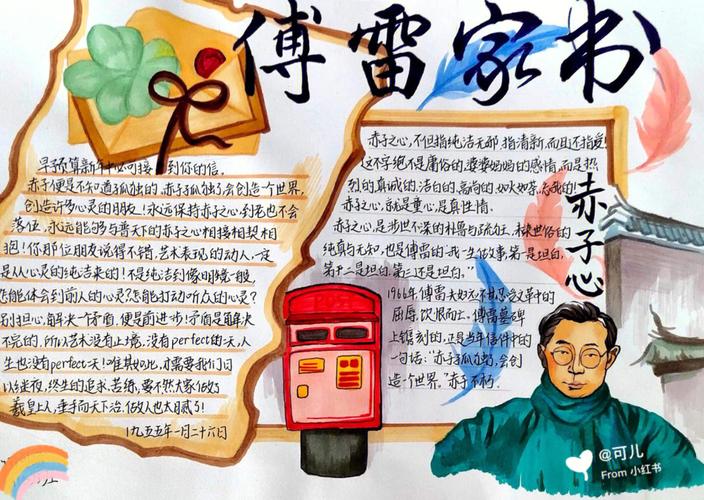 傅雷家书
早预算新年中必可接到你的信。
赤子便是不知道孤独的,赤子孤独了,会创造一个世界,
创造许多心灵的朋友!永远保持赤子之心,到老也不会
落伍,永远能够与普天下的赤子之心相接相契相
抱!你那位朋友说得不错,艺术表现的动人,一定
是从心灵的纯洁来的!不是纯洁到像明镜一般,
怎能体会到前人的心灵?怎能打动听众的心灵?
别担心,解决一个矛盾,便是前进一步!矛盾是解决
不完的,所以艺术没有止境,没有perfect的一天,人
生也没有perfect一天!唯其如此,才需要我们日
以继夜,终生的追求,苦练,要不然大家做了
羲皇上人,垂手而天下治,做人也太腻了!
一九五五年一月二十六日
赤子之心,不但指纯洁无邪,指清新,而且还指爱!
这爱绝不是庸俗的,婆婆妈妈的感情,而是热
烈的,真诚的,洁白的,高尚的,如火如荼,忘我的!
赤子之心,就是童心,是真性情。
赤子之心,是涉世不深的朴鲁与疏狂,未被世俗的
纯真与无知,也是傅雷的"我一生做事,第一是坦白,
第二是坦白,第三还是坦白。"
1966年,傅雷夫妇
屈辱,饮恨而亡。傅雷墓碑
上镌刻的,正是当年信件中的
一句话:"赤子孤独了,会创
造一个世界。"赤子不朽。
赤子心
@可儿
From 小红书